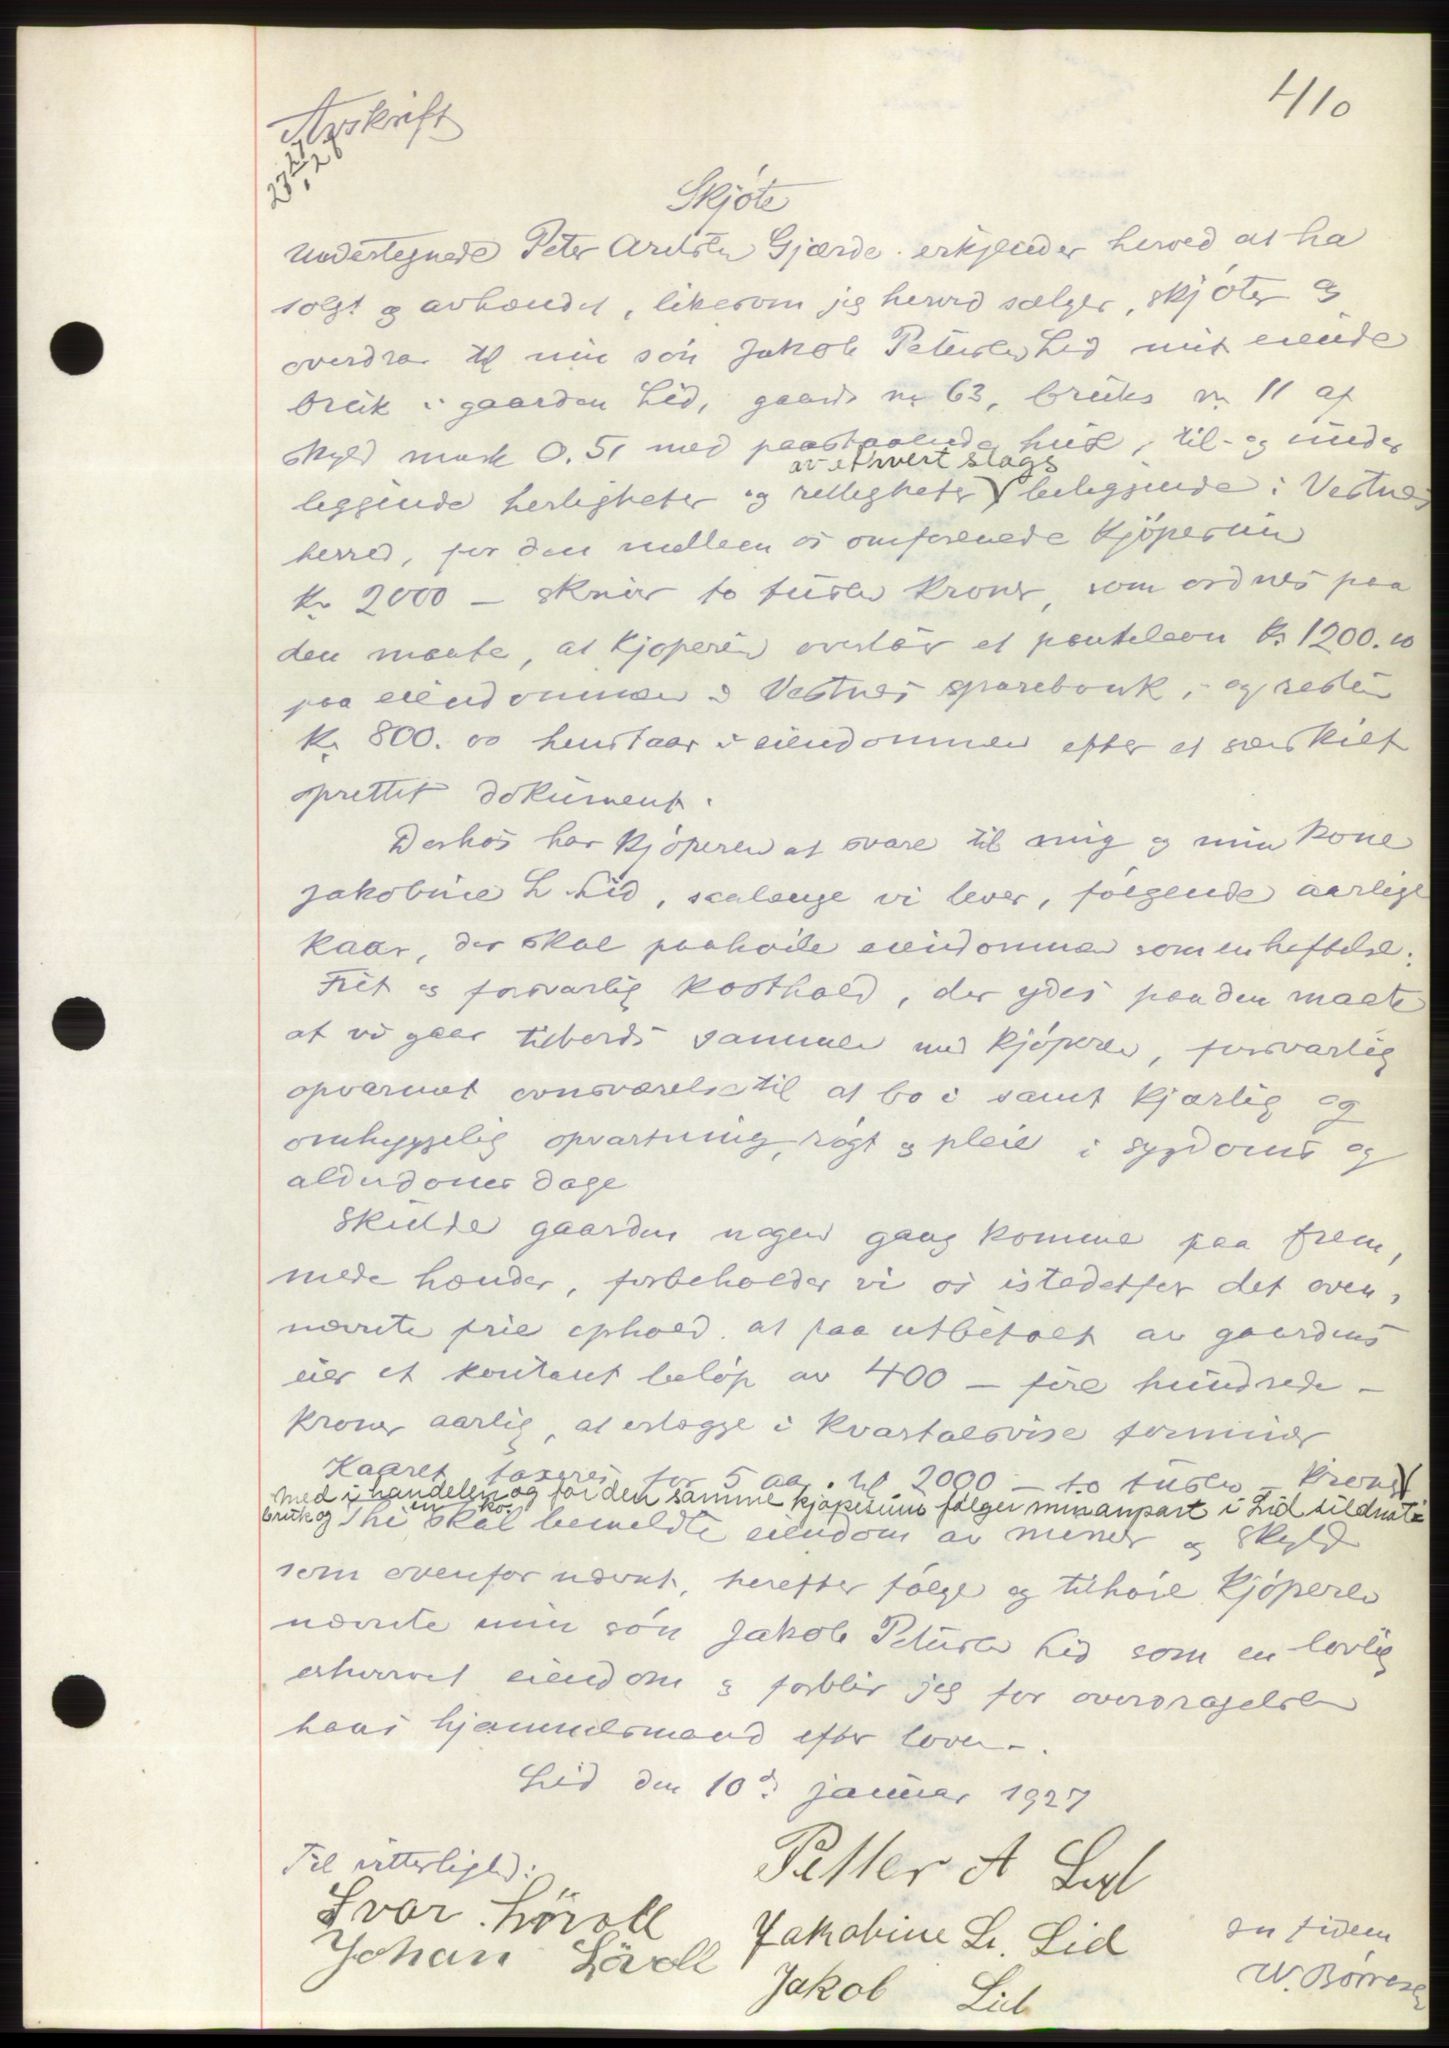 410
Avskrift
23
27/1 27
Skjøte
Undertegnede Peter Gjærde erkjender herved at ha
solgt og avhændet, likesom jeg herved sælger, skjøter og
overdrar til min søn Jakob Petersen Lid mit eiende
bruk i gaarden Lid, gaards nr 63, bruks nr 11 af
skyld mark 0.51 med paastaaende hus, til- og under
av ethvert slags
leggende herligheter og rettigheter beliggende i Vestnes
herred, for den mellem os omforenede kjøpesum
Kr 2000 – skriver to tusen kroner, som ordnes paa
den maate, at kjøperen overtar et pantelaan Kr 1200.00
paa eiendommen i Vestnes sparebank, og resten
Kr 800.00 henstaar i eiendommen efter et særskilt
oprettet dokument.
Derhos har kjøperen at svare til mig og min kone
Jakobine L Lid, saalenge vi lever, følgende aarlige
kaar, der skal paahvile eiendommen som en heftelse:
Frit og forsvarlig kosthold, der ydes paa den maate
at vi gaar tilbords sammen med kjøperen, forsvarlig
opvarmet ovnsværelse til at bo i samt kjærlig og
omhyggelig opvartning, røgt og pleie i sygdoms og
alderdoms dage
Skulde gaarden nogen gang komme paa frem,
mede hænder, forbeholder vi os istedetfor det oven,
nævnte frie ophold at faa utbetalt av gaardens
eier et kontant beløp av 400 – fire hundrede –
kroner aarlig, at erlægge i kvartalsvise terminer
Kaaret taxeres for 5 aar til 2000 – to tusen kroner
Med i handelen og for den samme kjøpesum følger min anpart i Lid sildnot=
bruk og en ko.
Thi skal bemeldte eiendom av nr og skyld
som ovenfor nævnt, herefter følge og tilhøre kjøperen
nævnte min søn Jakob Petersen Lid som en lovlig
erhvervet eiendom og forblir jeg for overdragelsen
hans hjemmelsmand efter loven.
Lid den 10de januar 1927
Til vitterlighed:
Petter A Lid
Ivar Løvoll
Jakobine L. Lid
Johan Løvoll
Jakob Lid
In fidem
W. Børresen